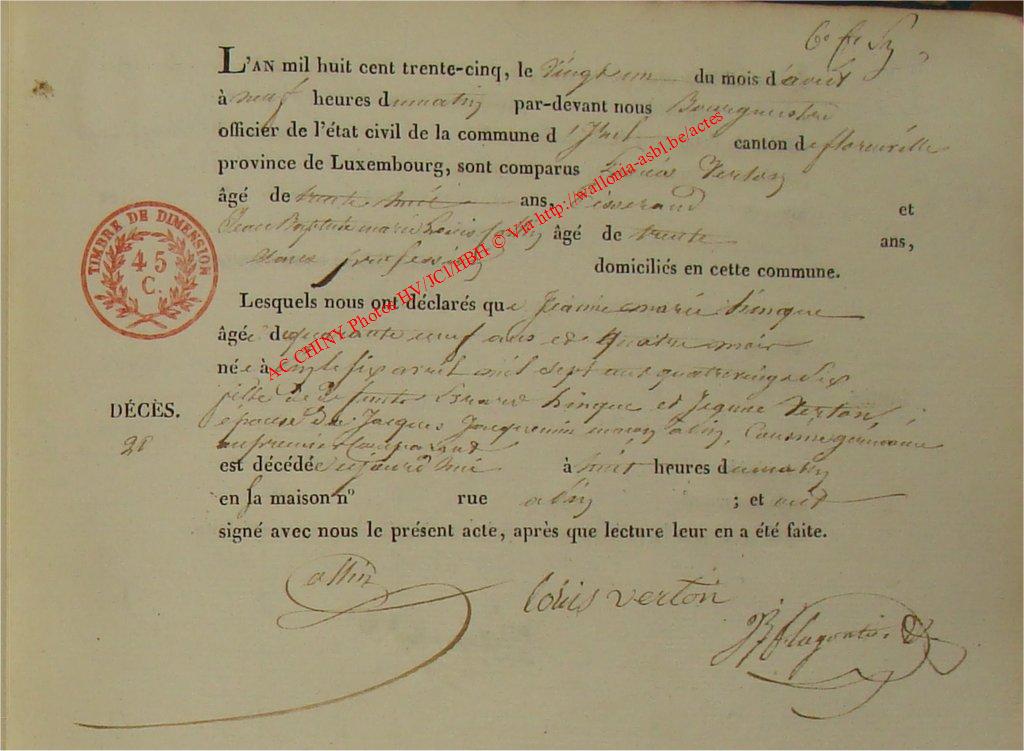 L'AN mil huit cent trente-cinq, le vingt un du mois d'avril
à neuf heures du matin par-devant nous Bourgmestre
officier de l'état civil de la commune d'Izel canton de florenville
province de Luxembourg, sont comparus Verton
âgé de trente huit ans, tisserand et
Jean Baptiste marie Louis âgé de trente ans,
sans profession domiciliés en cette commune.
Lesquels nous ont déclarés que Jeanne marie hinque
âgée de quarante neuf ans et quatre mois
née à Izel le six avril mil sept cent quatre vingt six
fille de defunts hinque et Jeanne Verton,
épouse de Jacques Jacquemin à Izel, Cousine germaine
au premier Comparant
DÉCÈS.
20
est décédée aujourd'hui à huit heures du matin
en sa maison n° rue à Izel ; et ont
signé avec nous le présent acte, après que lecture leur en a été faite.
Louis verton
TIMBRE DE DIMENSION
45
C.
AC CHINY Photos HV/JCl/HBH © Via http://wallonia-asbl.be/actes